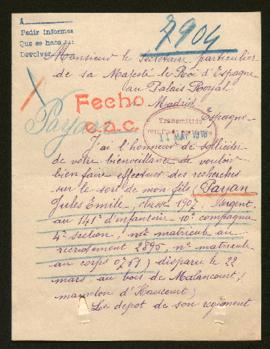 A
Pedir informes
Que se haga
Devolver
2904
Monsieur le secrétaire particulier
de sa Majesté le Roi d'Espagne
au Palais Royal
Madrid
Espagne
Fecho
c.a.c.
Payan
J'ai l'honneur de solliciter
de votre bienveillance de vouloir
bien faire effectuer des recherches
sur le sort de mon fils, Payan
Jules Emile, classe 1907, sergent
au 141e d'infanterie 10e compagnie
4e section, no matricule au
recrutement 2895, no matricule
au corps 0757) disparu le 22
mars au bois de Malancourt,
mamelon d'Haucourt)
Le dépôt de son régiment